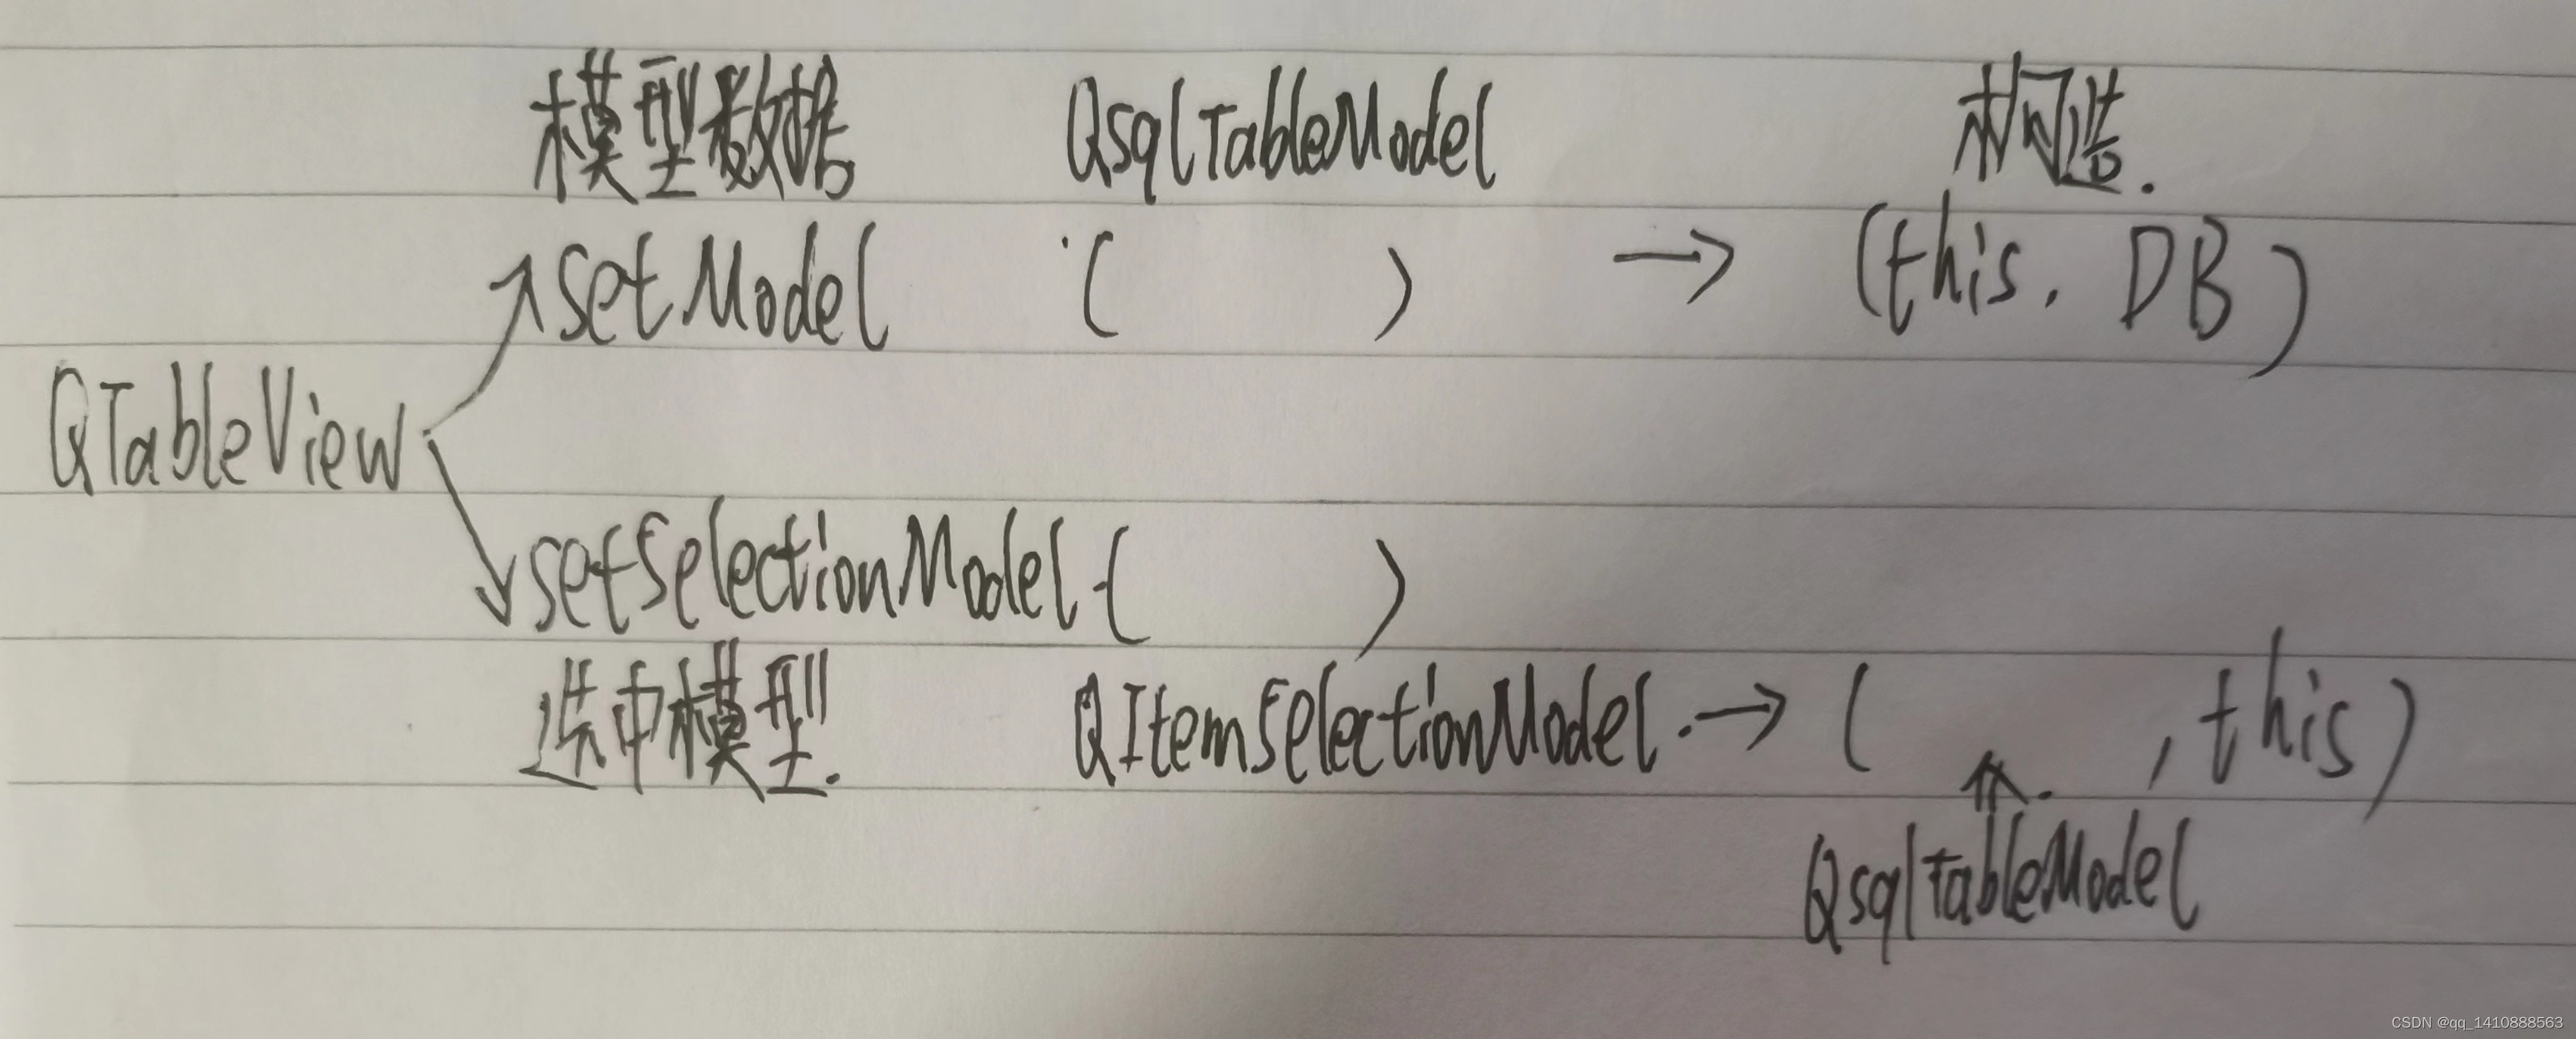 模型数据 QsqlTableModel 构造.
setModel ( ) → (this, DB)
QTableView
setSelectionModel ( )
选中模型. QItemSelectionModel. → ( , this)
QsqlTableModel
CSDN @qq_1410888563